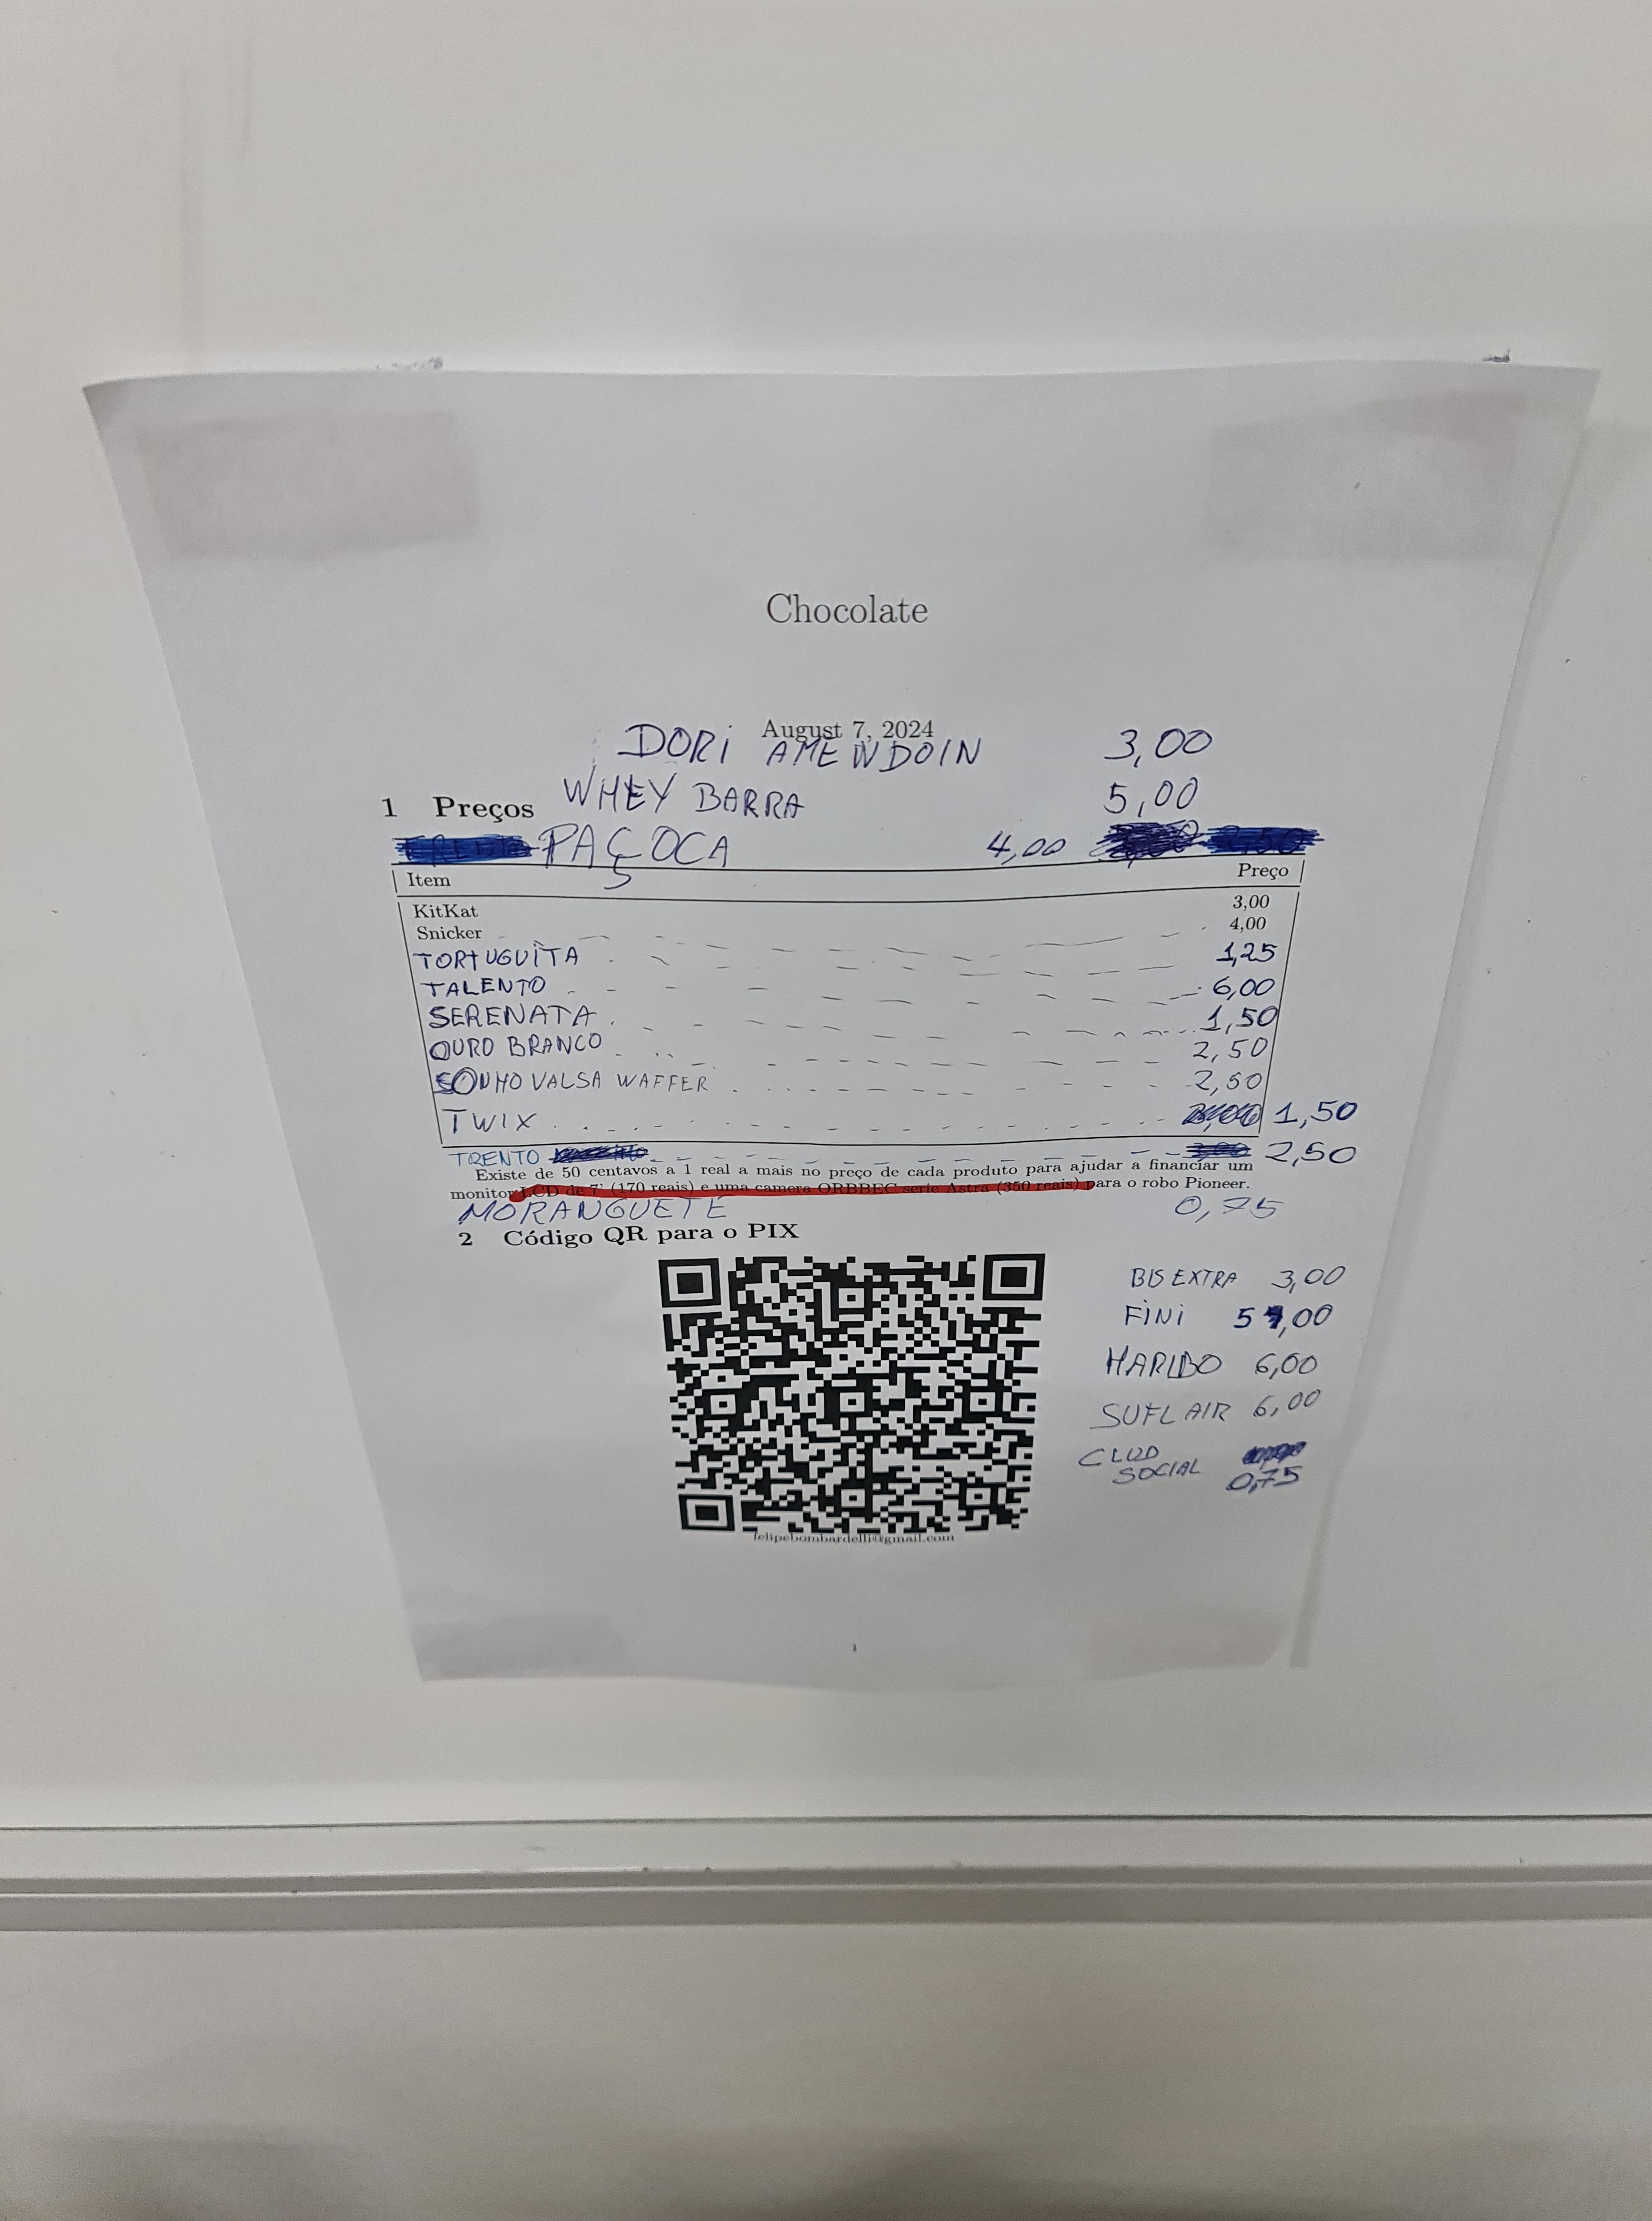 Chocolate
August 7, 2024
DORI AMEWDOIN 3,00
WHEY BARRA 5,00
1 Preços
PAÇOCA 4,00
Item Preço
KitKat 3,00
Snicker 4,00
TORTUGUITA 1,25
TALENTO 6,00
SERENATA 1,50
OURO BRANCO 2,50
SONHO VALSA WAFFER 2,50
TWIX 1,50
TRENTO 2,50
Existe de 50 centavos a 1 real a mais no preço de cada produto para ajudar a financiar um
monitor LCD de 7' (170 reais) e uma camera ORBBEC serie Astra (350 reais) para o robo Pioneer.
MORANGUETE 0,75
2 Código QR para o PIX
BIS EXTRA 3,00
FINI 5,00
HARIBO 6,00
SUFLAIR 6,00
CLUB
SOCIAL
0,75
felipebombardelli@gmail.com